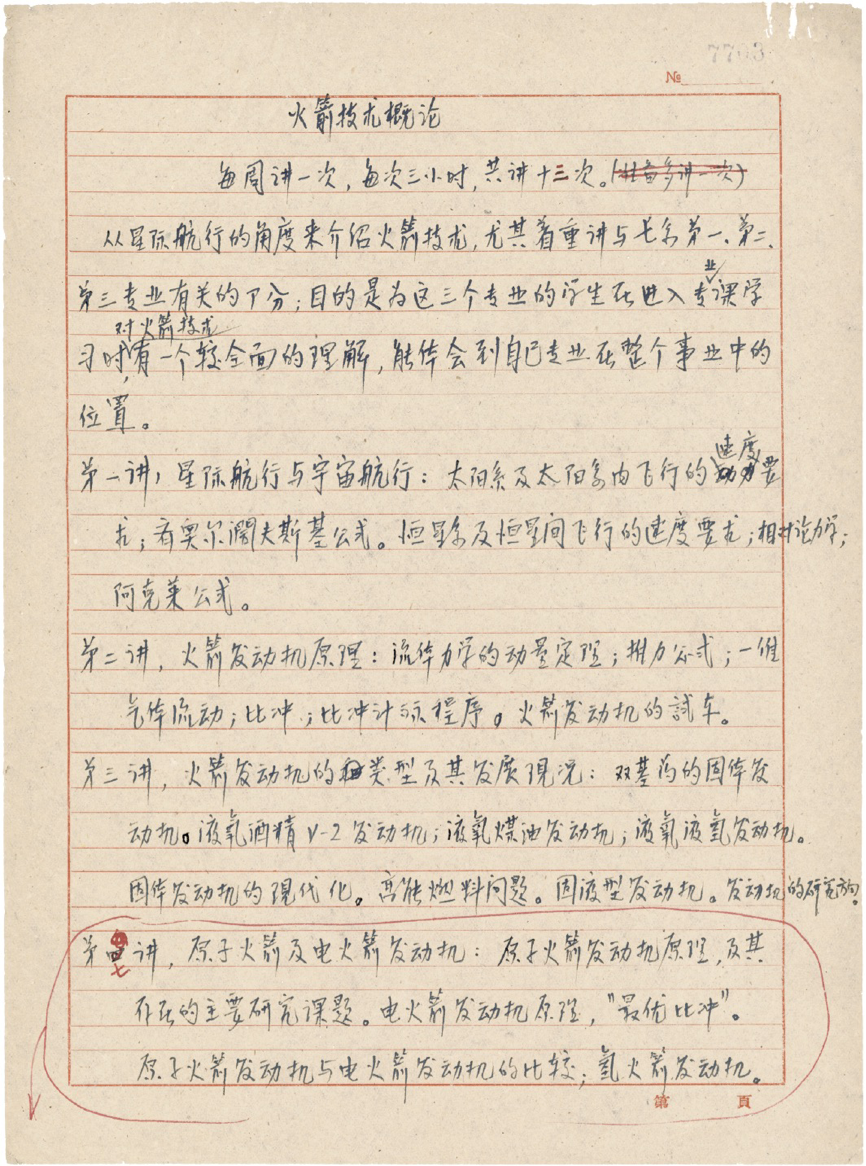 7703
№
火箭技术概论
每周讲一次，每次三小时，共讲十三次。(准备多讲一次)
从星际航行的角度来介绍火箭技术，尤其着重讲与七系第一、第二、
业
第三专业有关的部分；目的是为这三个专业的学生在进入专课学
对火箭技术
习时，有一个较全面的理解，能体会到自己专业在整个事业中的
位置。
速度
第一讲，星际航行与宇宙航行：太阳系及太阳系内飞行的动力要
求；齐奥尔濶夫斯基公式。恒星系及恒星间飞行的速度要求；相对论力学；
阿克莱公式。
第二讲，火箭发动机原理：流体力学的动量定理；推力公式；一维
气体流动；比冲；比冲计算程序。火箭发动机的試车。
第三讲，火箭发动机的类型及其发展现况：双基药的固体发
动机。液氧酒精V-2发动机；液氧煤油发动机；液氧液氢发动机。
固体发动机的现代化。高能燃料问题。固液型发动机。发动机的研究方向。
第七讲，原子火箭及电火箭发动机：原子火箭发动机原理，及其
存在的主要研究课题。电火箭发动机原理，"最优比冲"。
原子火箭发动机与电火箭发动机的比较；氢火箭发动机。
第 頁